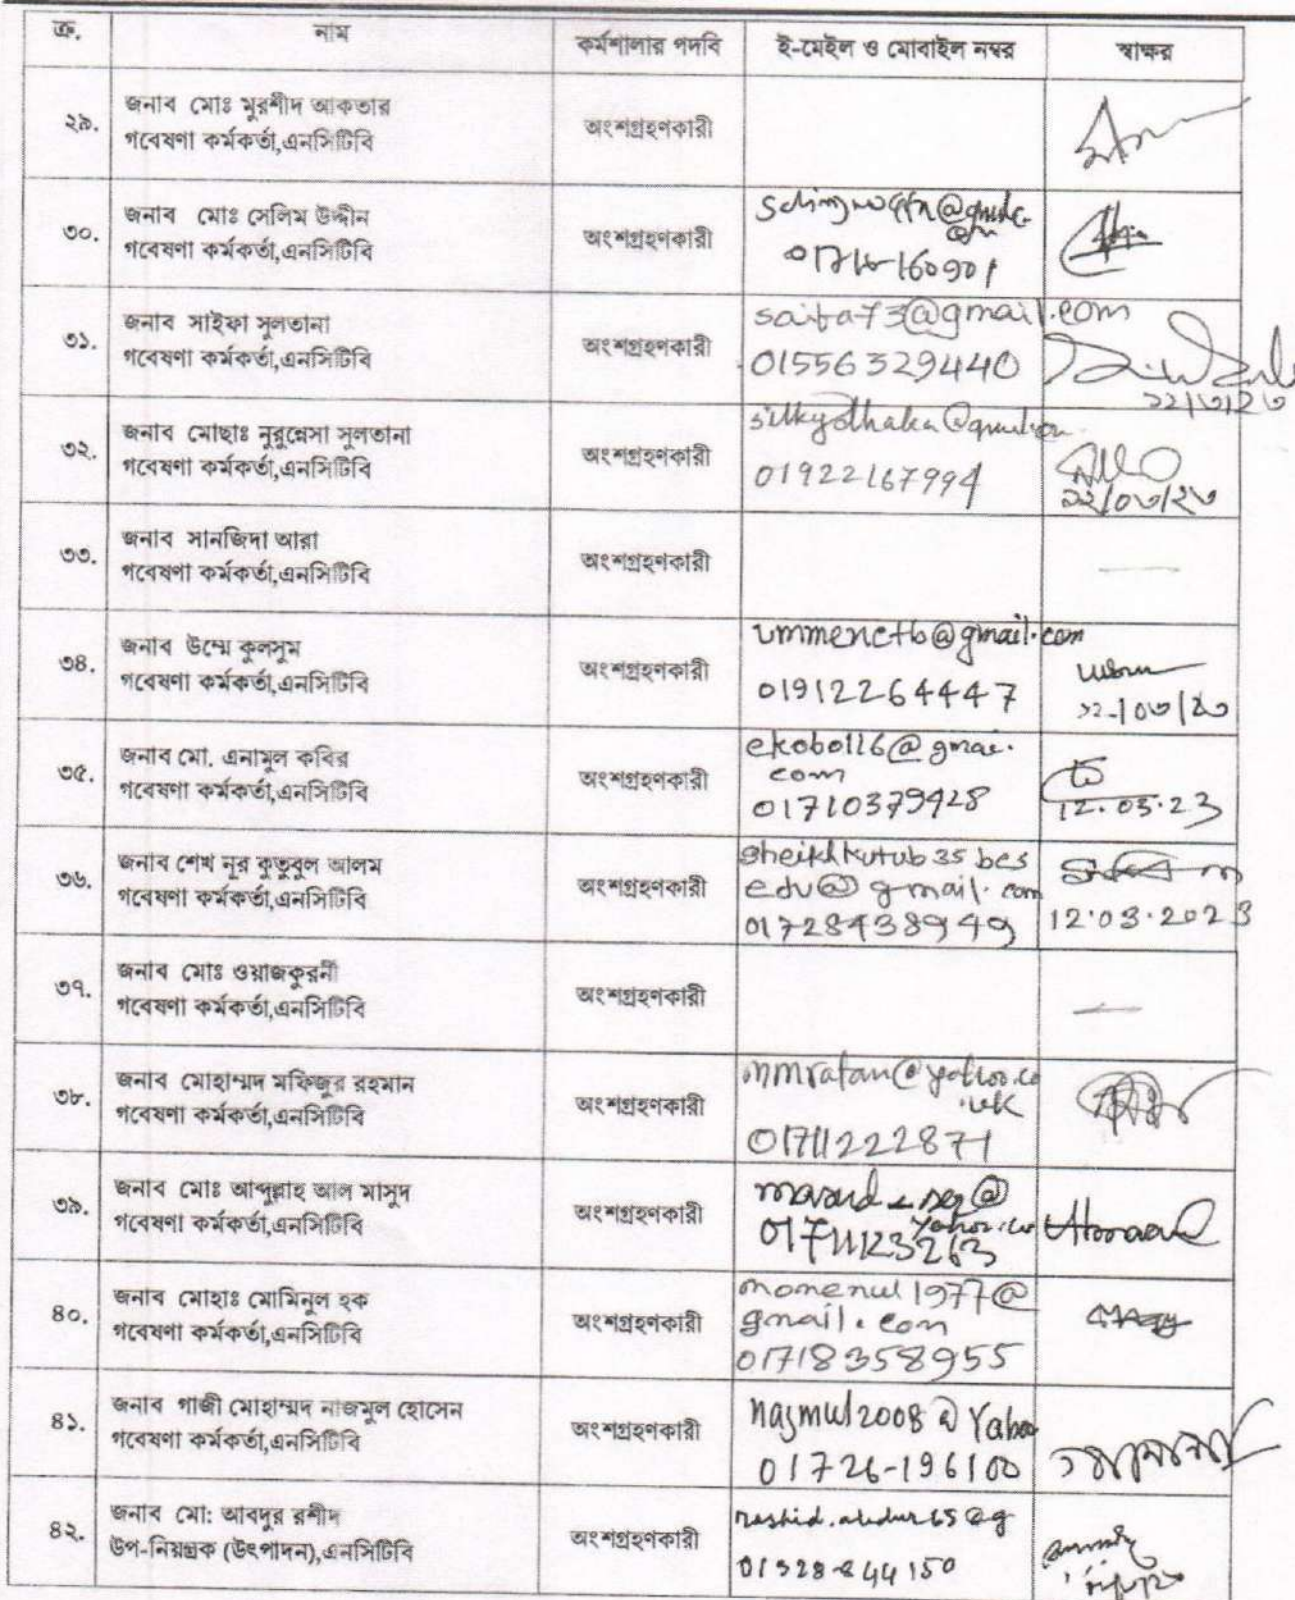 ক্র. নাম কর্মশালার পদবি ই-মেইল ও মোবাইল নম্বর স্বাক্ষর
২৯. জনাব মোঃ মুরশীদ আকতার
গবেষণা কর্মকর্তা,এনসিটিবি
অংশগ্রহণকারী
৩০. জনাব মোঃ সেলিম উদ্দীন
গবেষণা কর্মকর্তা,এনসিটিবি
অংশগ্রহণকারী
৩১. জনাব সাইফা সুলতানা
গবেষণা কর্মকর্তা,এনসিটিবি
অংশগ্রহণকারী
saifa73@gmail.com
01556329440
২২/৩/২৩
৩২. জনাব মোছাঃ নুরুন্নেসা সুলতানা
গবেষণা কর্মকর্তা,এনসিটিবি
অংশগ্রহণকারী
01922167994
১২/০৩/২৩
৩৩. জনাব সানজিদা আরা
গবেষণা কর্মকর্তা,এনসিটিবি
অংশগ্রহণকারী
৩৪. জনাব উম্মে কুলসুম
গবেষণা কর্মকর্তা,এনসিটিবি
অংশগ্রহণকারী
ummenctb@gmail.com
01912264447
১২/০৩/২৩
৩৫. জনাব মো. এনামুল কবির
গবেষণা কর্মকর্তা,এনসিটিবি
অংশগ্রহণকারী
com
01710379428
12.03.23
৩৬. জনাব শেখ নূর কুতুবুল আলম
গবেষণা কর্মকর্তা,এনসিটিবি
অংশগ্রহণকারী
sheikhkutub35bcs
edu@gmail.com
01728438949
12.03.2023
৩৭. জনাব মোঃ ওয়াজকুরনী
গবেষণা কর্মকর্তা,এনসিটিবি
অংশগ্রহণকারী
৩৮. জনাব মোহাম্মদ মফিজুর রহমান
গবেষণা কর্মকর্তা,এনসিটিবি
অংশগ্রহণকারী
mmratan@yahoo.co
.uk
01711222871
৩৯. জনাব মোঃ আব্দুল্লাহ আল মাসুদ
গবেষণা কর্মকর্তা,এনসিটিবি
অংশগ্রহণকারী
01711123263
৪০. জনাব মোহাঃ মোমিনুল হক
গবেষণা কর্মকর্তা,এনসিটিবি
অংশগ্রহণকারী
momenul1977@
gmail.com
01718358955
৪১. জনাব গাজী মোহাম্মদ নাজমুল হোসেন
গবেষণা কর্মকর্তা,এনসিটিবি
অংশগ্রহণকারী
najmul2008@Yahoo
01726-196100
৪২. জনাব মো: আবদুর রশীদ
উপ-নিয়ন্ত্রক (উৎপাদন),এনসিটিবি
অংশগ্রহণকারী
rashid.abdur65@g